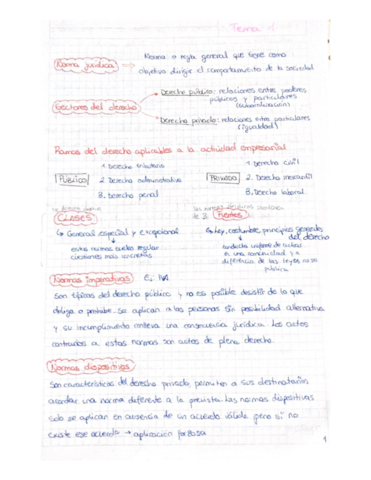 Tema 1
Norma jurídica → Norma o regla general que tiene como
objetivo dirigir el comportamiento de la sociedad
Sectores del derecho
Derecho público: relaciones entre poderes
públicos y particulares
(subordinación)
Derecho privado: relaciones entre particulares
(igualdad)
Ramas del derecho aplicables a la actividad empresarial
PÚBLICO
1. Derecho tributario
2. Derecho administrativo
3. Derecho penal
PRIVADO
1. Derecho civil
2. Derecho mercantil
3. Derecho laboral
CLASES
↳ General, especial y excepcional
estas normas suelen regular
cuestiones más concretas
de 3 Fuentes
↳ Ley, costumbre, principios generales
del derecho
conducta uniforme de actuar
en una comunidad y a
diferencia de las leyes no se
publica
Normas imperativas Ej: IVA
Son típicas del derecho público y no es posible desistir de lo que
obliga o prohíbe. Se aplican a las personas sin posibilidad alternativa
y su incumplimiento conlleva una consecuencia jurídica. Los actos
contrarios a estas normas son nulos de pleno derecho.
Normas dispositivas
Son características del derecho privado, permiten a sus destinatarios
acordar una norma diferente a la prevista. Las normas dispositivas
solo se aplican en ausencia de un acuerdo válido, pero si no
existe ese acuerdo → aplicación forzosa
1